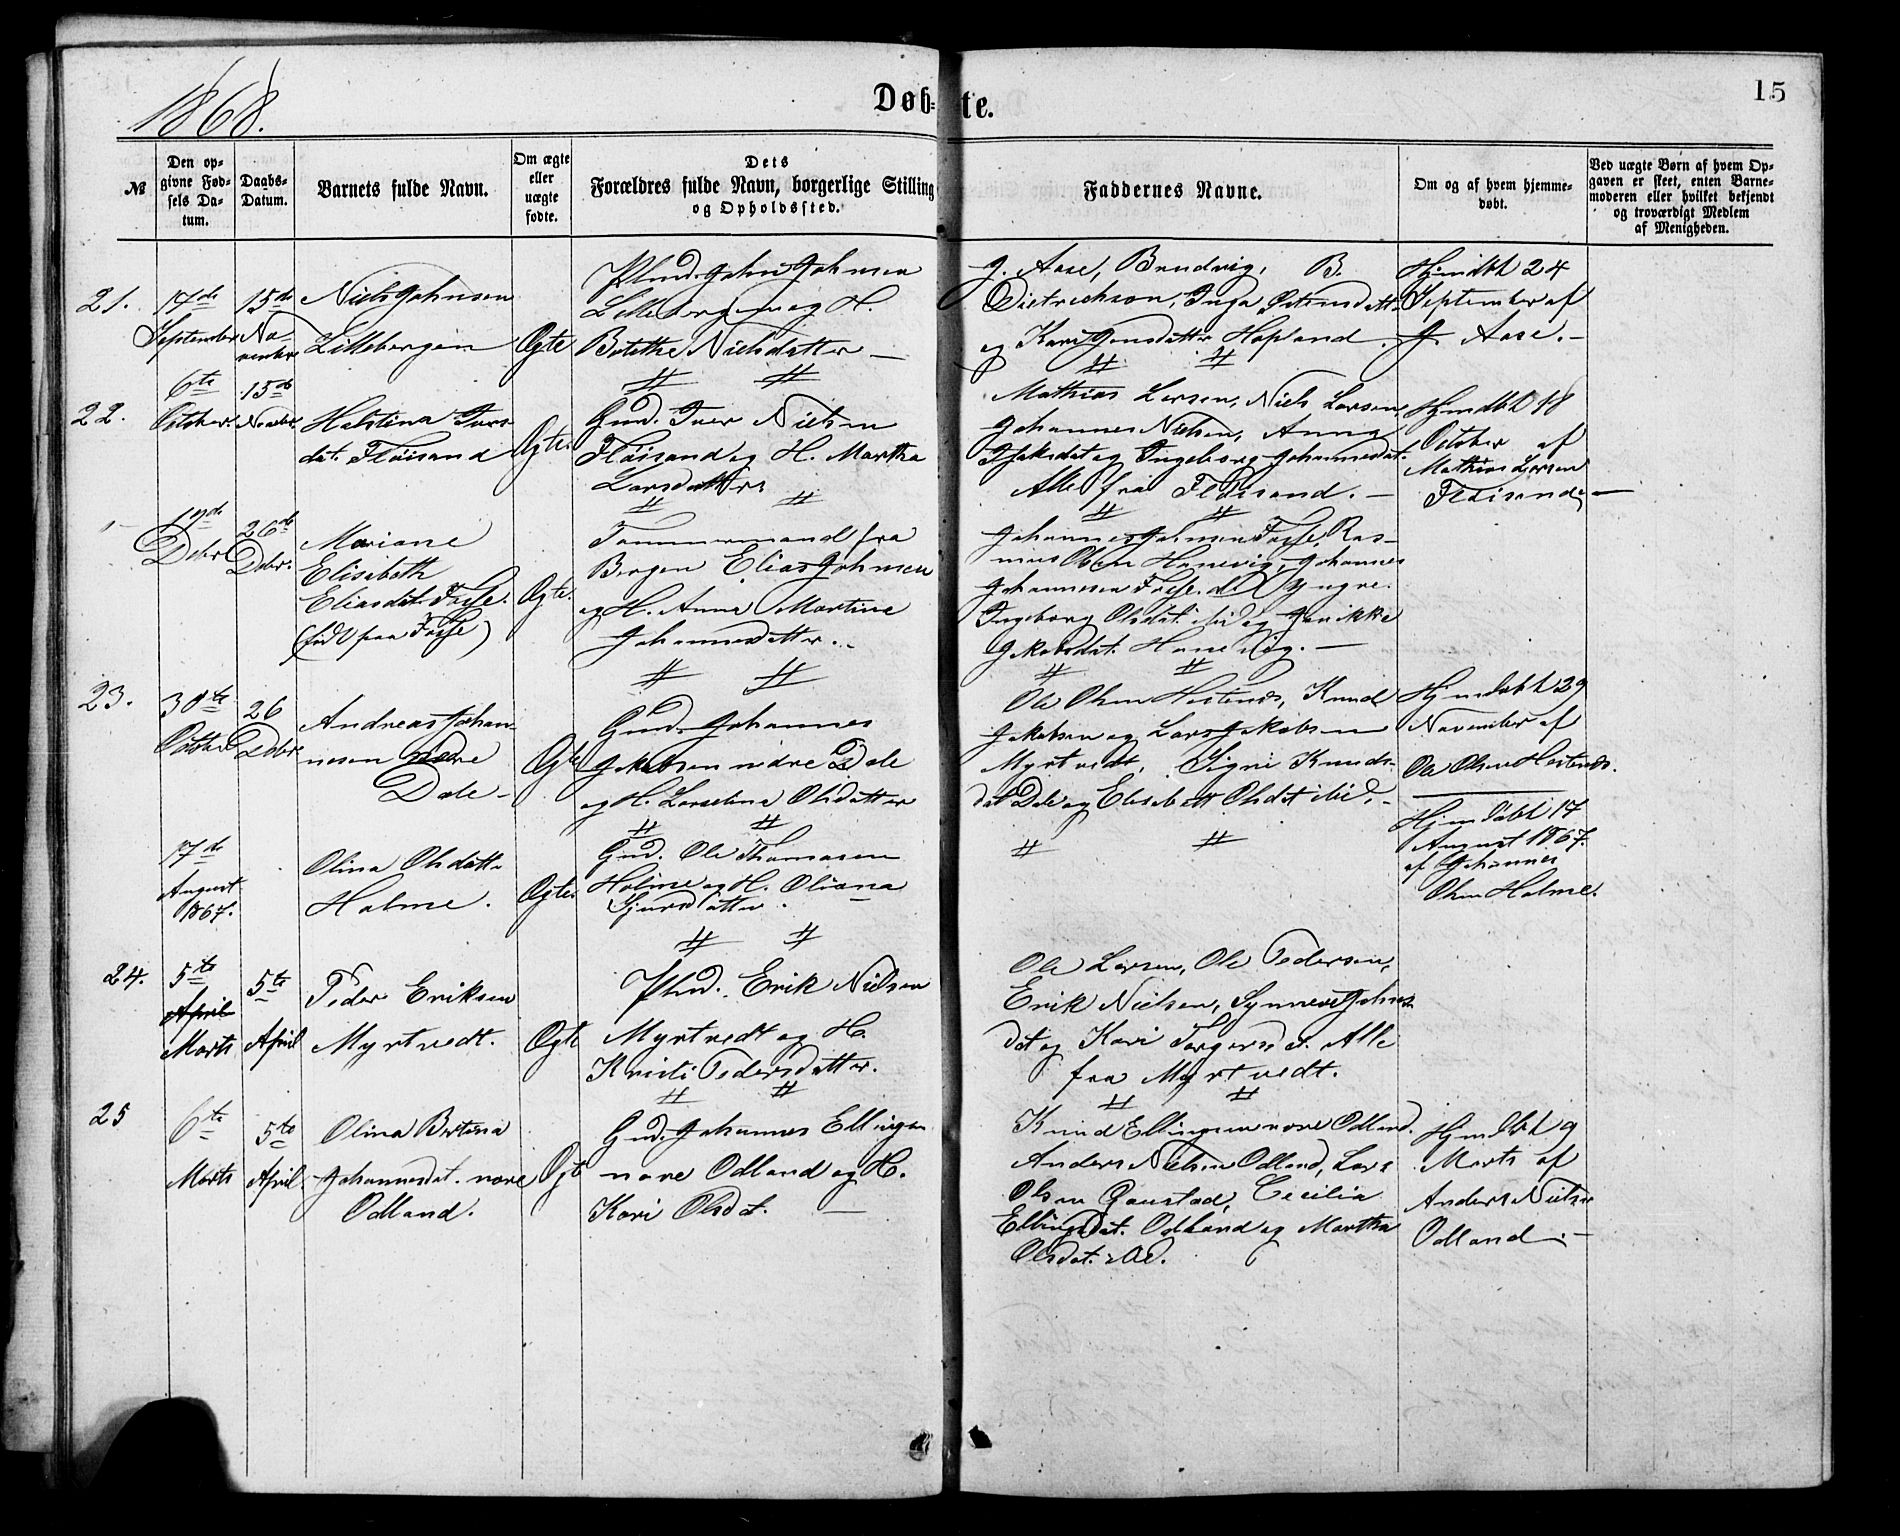 1868.
Døb=te.
15
№
Den op=
givne Fød=
sels Da=
tum.
Daabs=
Datum.
Barnets fulde Navn.
Om ægte
eller
uægte
fødte.
Dets
Forældres fulde Navn, borgerlige Stilling
og Opholdssted.
Faddernes Navne.
Om og af hvem hjemme=
døbt.
Ved uægte Børn af hvem Op=
gaven er skeet, enten Barne=
moderen eller hvilket bekjendt
og troværdigt Medlem
af Menigheden.
21.
17de
September
15de
No-
vember
Niels Johnsen
Lillebergen
Ægte
Plmd. John Johnsen
Lillebergen og H.
Botilthe Nielsdatter —
J. Aase, Brudvig, B.
Dietrichson, Inga Østensdatt.
og Kari Jensdatter Hopland.
Hjmdbt 24
September af
J. Aase. —
22.
6te
October
15de
Novbr.
Halstina Ivers
dat. Fløisand
Ægte.
Gmd. Iver Nielsen
Fløisand og H. Martha
Larsdatter
Mathias Larsen, Niels Larsen,
Johannes Nielsen, Anna
Isaksdat og Ingeborg Johannesdat.
Alle fra Fløisand. —
Hjmdbt 18
October af
Mathias Larsen
Fløisand —
19de
Debr
26de
Debr.
Mariane
Elisabeth
Eliasdat. Fosse.
(født paa Fosse)
Ægte.
Tømmermand fra
Bergen Elias Johnsen
og H. Anna Martine
Johannesdatter.
Johannes Johnsen Fosse, Ras-
mus Olsen Hanevig, Johannes
Johannesen Fosse d. Yngre.
Ingeborg Olsdat. ibid og Jenikke
Jakobsdat. Hanevig. —
23.
30te
October
26
Debr.
Andreas Johan-
nesen nedre
Dale —
Ægte
Gmd. Johannes
Jakobsen nedre Dale
og H. Larselina Olsdatter
Ole Olsen Hestenes, Knud
Jakobsen og Lars Jakobsen
Myrtvedt, Sigri Knuds-
dat Dale og Elisabett Olsdat ibid. —
Hjemdøbt 29
November af
Ole Olsen Hestenes.
17de
August
1867.
Olina Olsdatt.
Holme.
Ægte.
Gmd. Ole Thomasen
Holme og H. Oliana
Sjursdatter.
Hjemdøbt 17
August 1867.
af Johannes
Olsen Holme.
24.
5te
April
Marts
5te
April
Peder Eriksen
Myrtvedt.
Ægte
Plmd. Erik Nielsen
Myrtvedt og H.
Kristi Pedersdatter.
Ole Larsen, Ole Pedersen,
Erik Nielsen, Synneve Johns
dat og Kari Torgersd at. Alle
fra Myrtvedt.
25
6te
Marts
5te
April.
Olina Bertina
Johannesdat. nore
Odland.
Ægte
Gmd. Johannes Ellingsen
nore Odland og H.
Kari Olsdat. —
Knud Ellingsen nore Odland.
Anders Nielsen Odland, Lars
Olsen Gaustad, Cecilia
Ellingsdat. Odland og Martha
Olsdat. ibid.
Hjmdbt 9
Marts af
Anders Nielsen
Odland. —